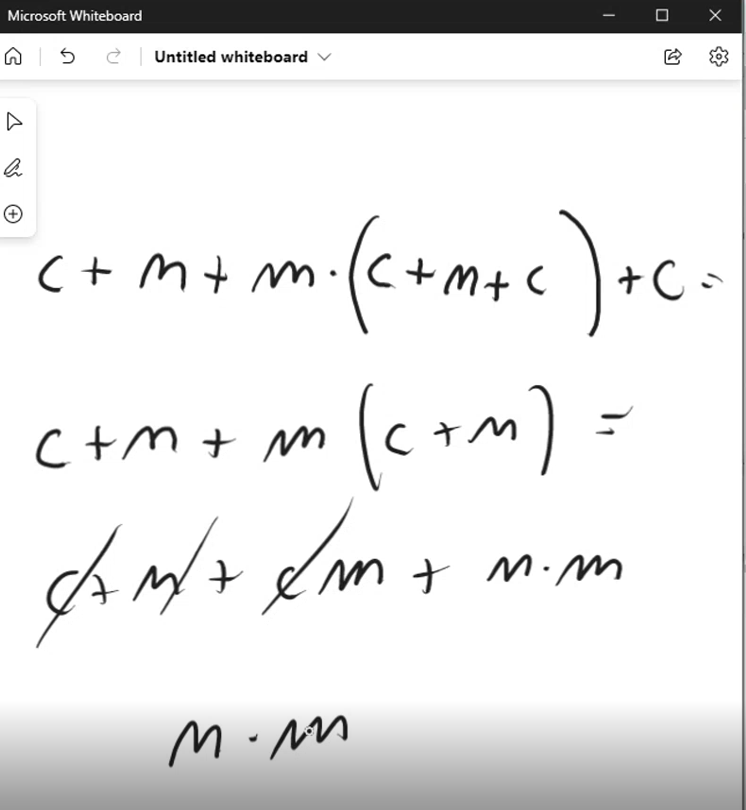 Microsoft Whiteboard
Untitled whiteboard
c + m + m · (c + m + c) + c =
c + m + m (c + m) =
c + m + cm + m · m
m · m